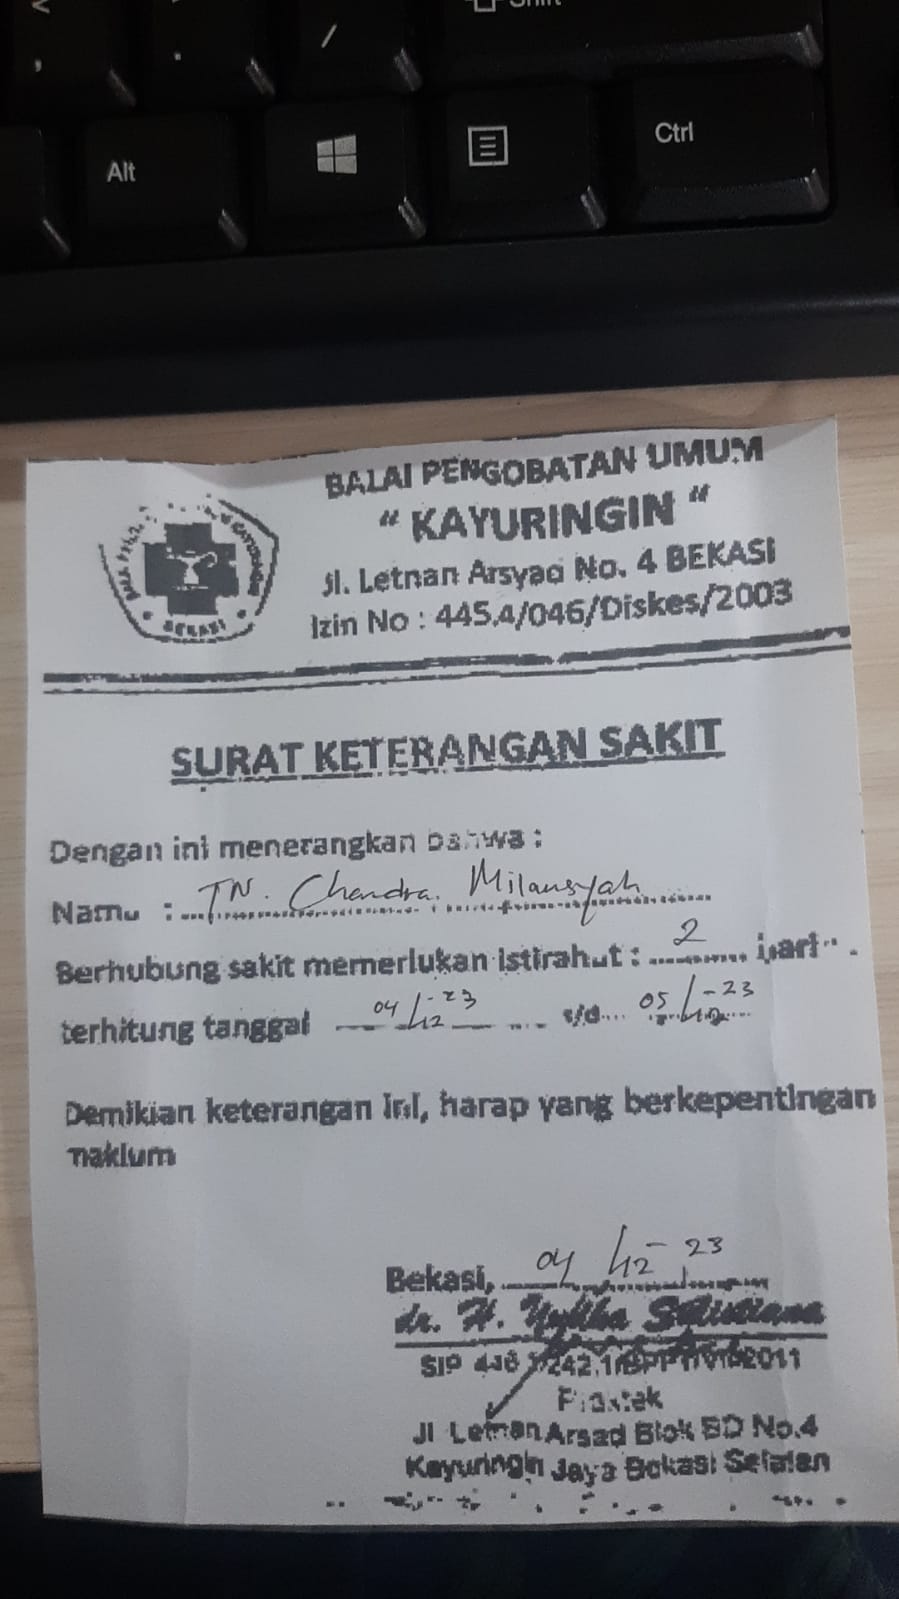 Shift
<
,
.
/
Alt
Ctrl
BALAI PENGOBATAN UMUM
“ KAYURINGIN “
Jl. Letnan Arsyad No. 4 BEKASI
Izin No : 445.4/046/Diskes/2003
BEKASI
SURAT KETERANGAN SAKIT
Dengan ini menerangkan bahwa :
Nama : TN. Chandra. Milansyah
Berhubung sakit memerlukan istirahat : 2 hari
terhitung tanggal 04/12-23 s/d 05/12-23
Demikian keterangan ini, harap yang berkepentingan
maklum
Bekasi, 04/12-23
dr. H.
SIP 2011
Jl Letnan Arsad Blok BD No.4
Kayuringin Jaya Bekasi Selatan